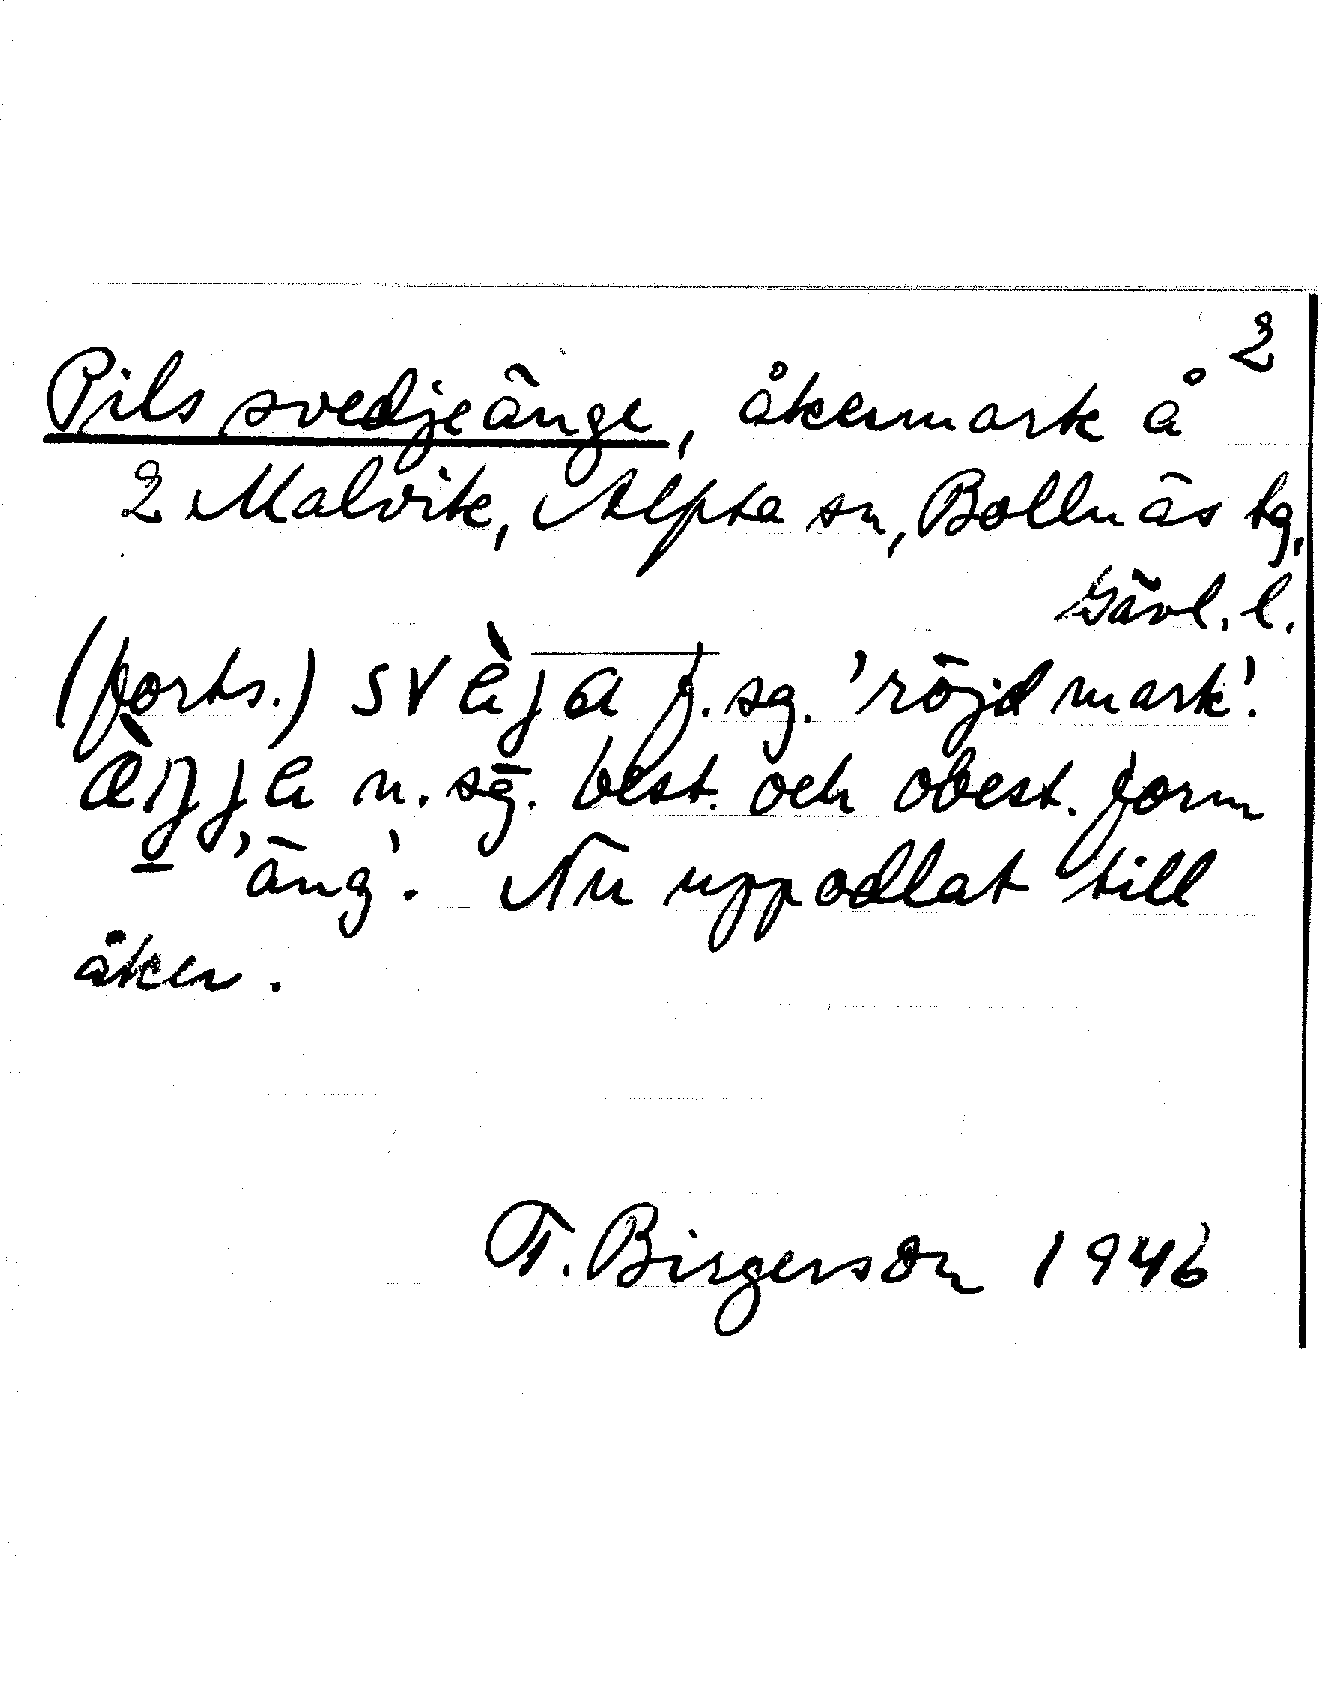 2
Pils svedjeänge, åkermark å
2 Malvik, Alfta sn, Bollnäs tg,
Gävl. l.
(forts.) svèja f. sg. 'röjd mark'.
n. sg. best. och obest. form
'äng'. Nu uppodlat till
åker.
F. Birgerson 1946